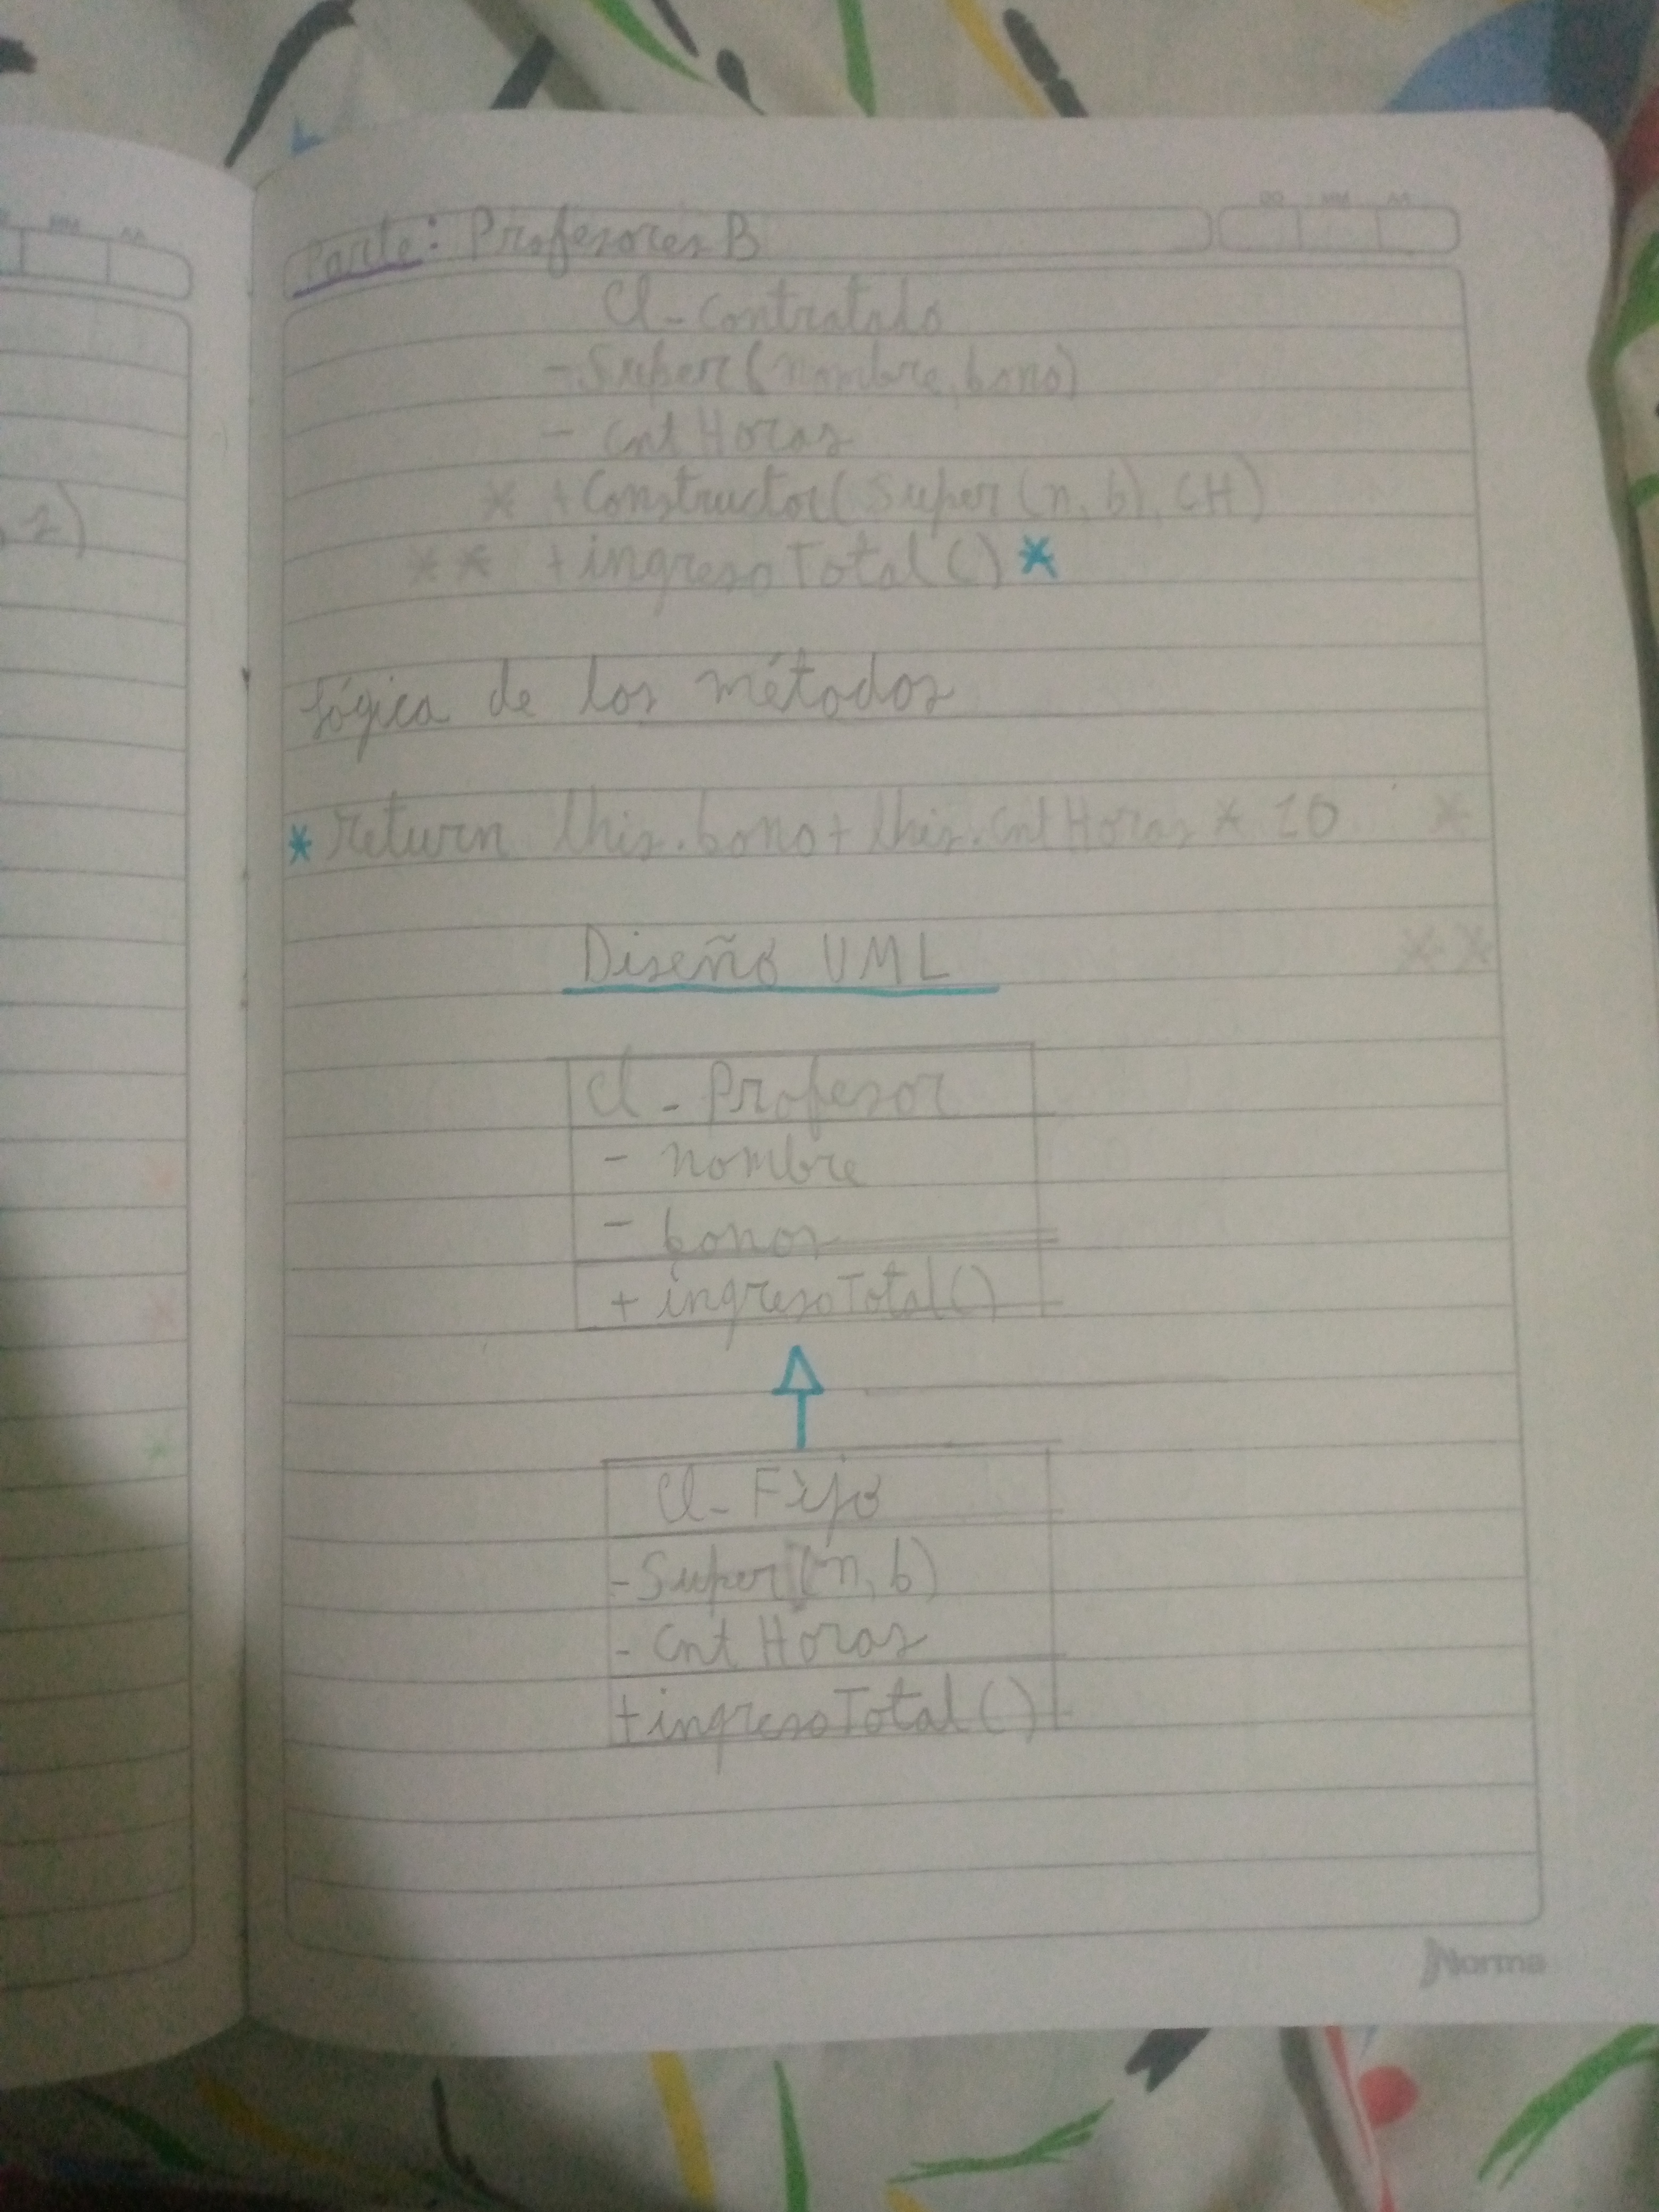 MM AA
, 2)
DD MM AA
Parte: Profesores B
Cl_contratado
- Super(nombre, bono)
- cntHoras
* + Constructor(Super(n, b), CH)
** + ingresoTotal() *
Lógica de los métodos
* return this.bono + this.cntHoras * 10 *
Diseño UML **
Cl_Profesor
- nombre
- bonos
+ ingresoTotal()
Cl_Fijo
- Super(n, b)
- cntHoras
+ ingresoTotal()
Norma